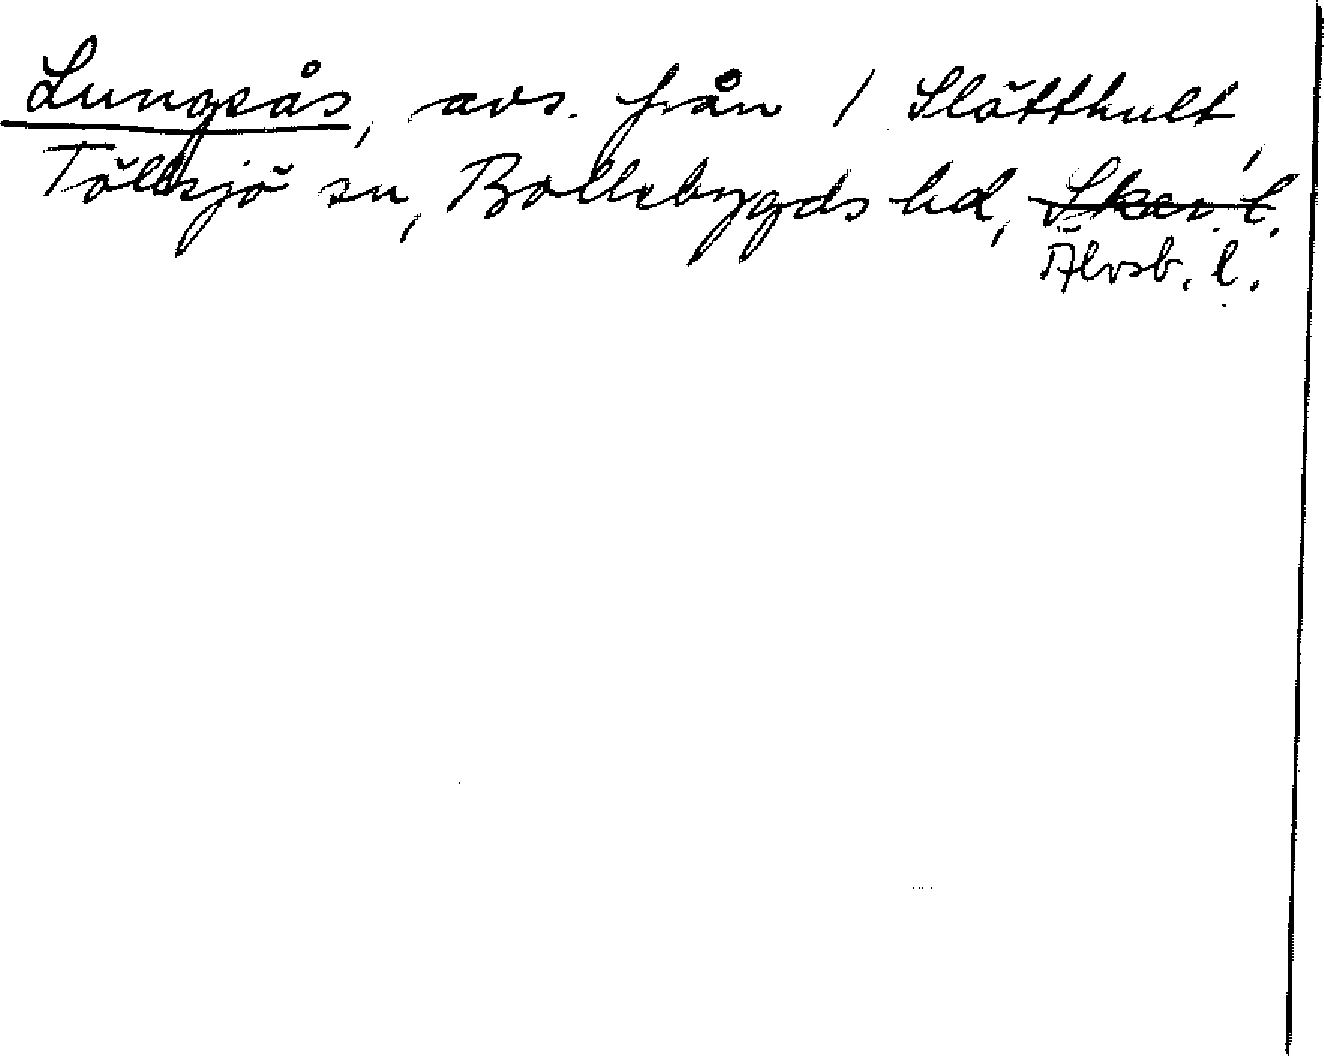 Lungsås, avs. från 1 Slätthult,
Töllsjö sn, Bollebygds hd, Skar. l.
Älvsb. l.